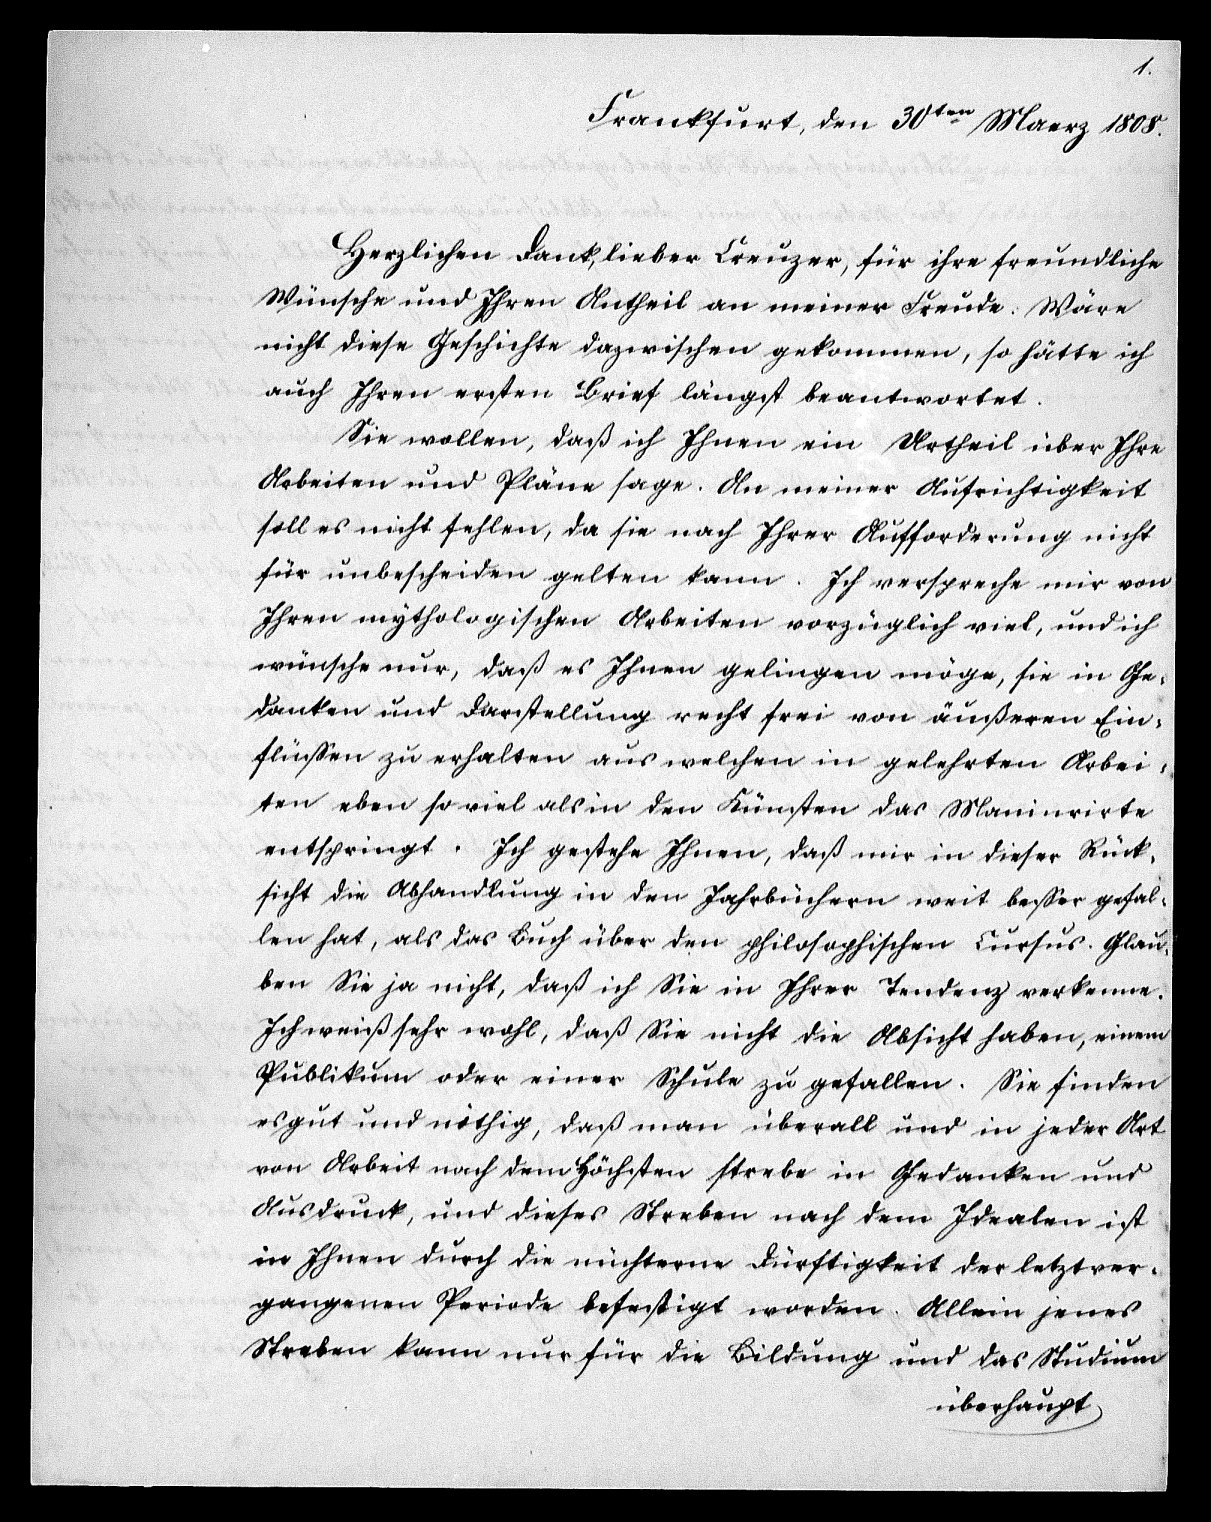 1.
Frankfurt, den 30ten Maerz 1808.
Herzlichen Dank, lieber Creuzer, für ihre freundliche
Wünsche und Ihren Antheil an meiner Freude. Wäre
nicht diese Geschichte dazwischen gekommen, so hätte ich
auch Ihren ersten Brief längst beantwortet.
Sie wollen, daß ich Ihnen ein Urtheil über Ihre
Arbeiten und Pläne sage. An meiner Aufrichtigkeit
soll es nicht fehlen, da sie nach Ihrer Aufforderung nicht
für unbescheiden gelten kann. Ich verspreche mir von
Ihren mythologischen Arbeiten vorzüglich viel, und ich
wünsche nur, daß es Ihnen gelingen möge, sie in Ge-
danken und Darstellung recht frei von äußeren Ein-
flüssen zu erhalten aus welchen in gelehrten Arbei-
ten eben so viel als in den Künsten das Manirirte
entspringt. Ich gestehe Ihnen, daß mir in dieser Rück-
sicht die Abhandlung in den Jahrbüchern weit besser gefal-
len hat, als das Buch über den philosophischen Cursus. Glau-
ben Sie ja nicht, daß ich Sie in Ihrer Tendenz verkenne.
Ich weiß sehr wohl, daß Sie nicht die Absicht haben, einem
Publikum oder einer Schule zu gefallen. Sie finden
es gut und nöthig, daß man überall und in jeder Art
von Arbeit nach dem Höchsten strebe in Gedanken und
Ausdruck, und dieses Streben nach dem Idealen ist
in Ihnen durch die nüchterne Dürftigkeit der letztver-
gangenen Periode befestigt worden. Allein jenes
Streben kann nur für die Bildung und das Studium
überhaupt